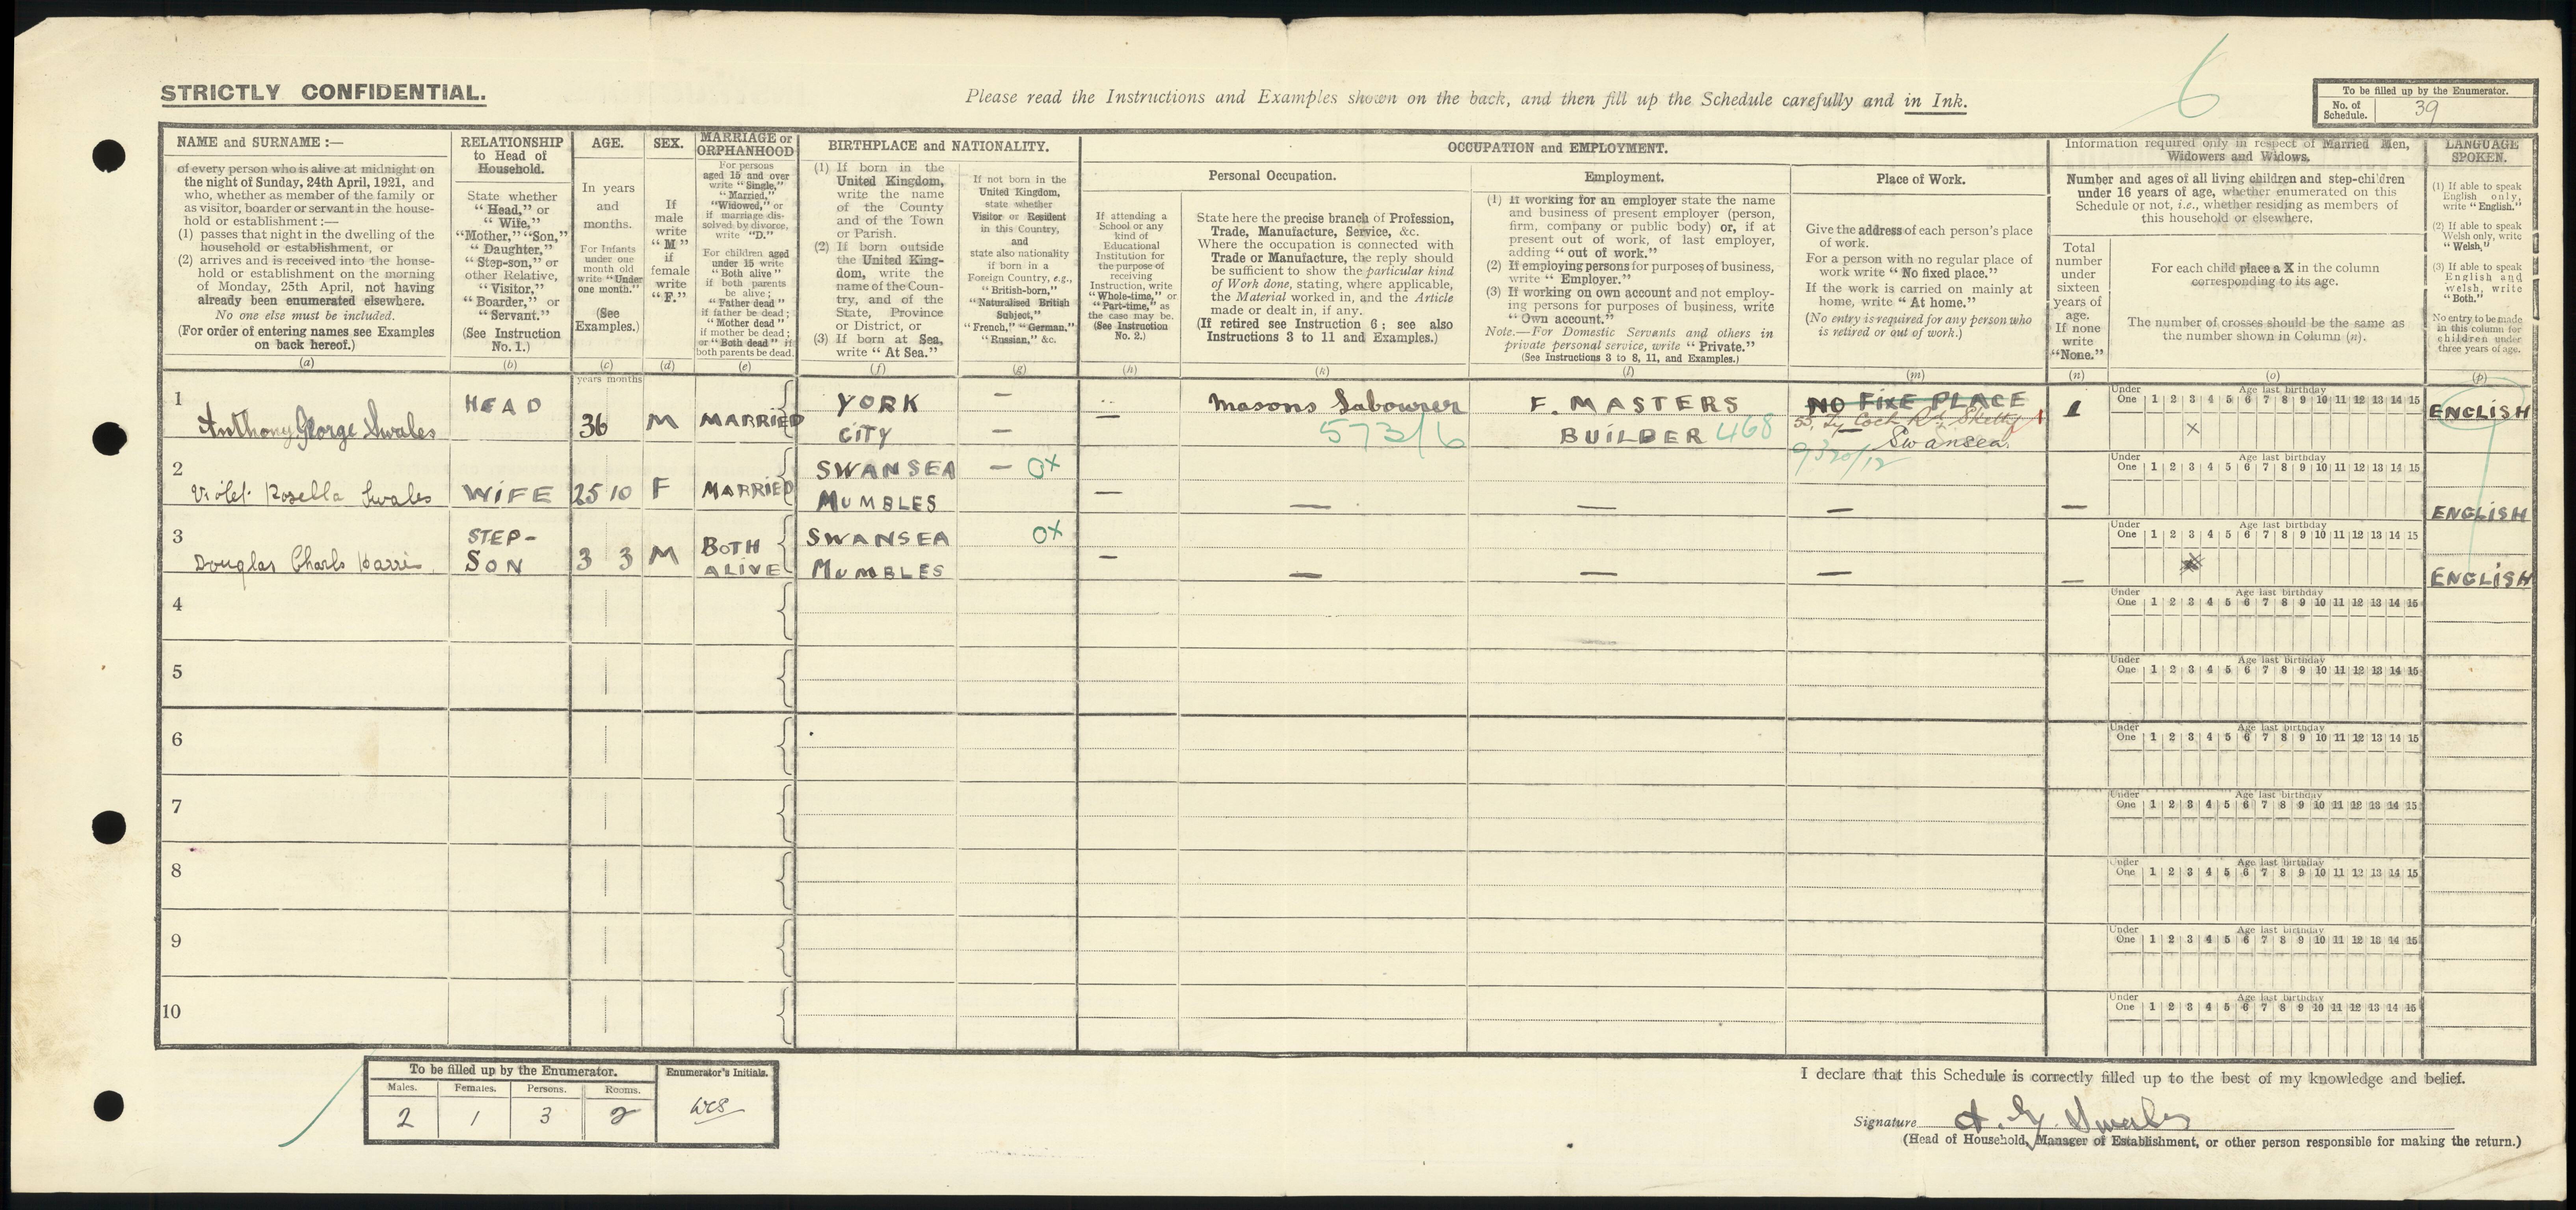 STRICTLY CONFIDENTIAL.
Please read the Instructions and Examples shown on the back, and then fill up the Schedule carefully and in Ink.
6
To be filled up by the Enumerator.
No. of Schedule. 39
NAME and SURNAME :—
of every person who is alive at midnight on
the night of Sunday, 24th April, 1921, and
who, whether as member of the family or
as visitor, boarder or servant in the house-
hold or establishment :—
(1) passes that night in the dwelling of the
household or establishment, or
(2) arrives and is received into the house-
hold or establishment on the morning
of Monday, 25th April, not having
already been enumerated elsewhere.
No one else must be included.
(For order of entering names see Examples
on back hereof.)
(a)
RELATIONSHIP
to Head of
Household.
State whether
“Head,” or
“Wife,”
“Mother,” “Son,”
“Daughter,”
“Step-son,” or
other Relative,
“Visitor,”
“Boarder,” or
“Servant.”
(See Instruction
No. 1.)
(b)
AGE.
In years
and
months.
For Infants
under one
month old
write “Under
one month.”
(See
Examples.)
(c)
SEX.
If
male
write
“M”
if
female
write
“F.”
(d)
MARRIAGE or
ORPHANHOOD
For persons
aged 15 and over
write “Single,”
“Married,”
“Widowed,” or
if marriage dis-
solved by divorce,
write “D.”
For children aged
under 15 write
“Both alive”
if both parents
be alive;
“Father dead”
if father be dead;
“Mother dead”
if mother be dead;
or “Both dead” if
both parents be dead.
(e)
BIRTHPLACE and NATIONALITY.
(1) If born in the
United Kingdom,
write the name
of the County
and of the Town
or Parish.
(2) If born outside
the United King-
dom, write the
name of the Coun-
try, and of the
State, Province
or District, or
(3) If born at Sea,
write “At Sea.”
(f)
If not born in the
United Kingdom,
state whether
Visitor or Resident
in this Country,
and
state also nationality
if born in a
Foreign Country, e.g.,
“British-born,”
“Naturalised British
Subject,”
“French,” “German,”
“Russian,” &c.
(g)
OCCUPATION and EMPLOYMENT.
If attending a
School or any
kind of
Educational
Institution for
the purpose of
receiving
Instruction, write
“Whole-time,” or
“Part-time,” as
the case may be.
(See Instruction
No. 2.)
(h)
Personal Occupation.
State here the precise branch of Profession,
Trade, Manufacture, Service, &c.
Where the occupation is connected with
Trade or Manufacture, the reply should
be sufficient to show the particular kind
of Work done, stating, where applicable,
the Material worked in, and the Article
made or dealt in, if any.
(If retired see Instruction 6 ; see also
Instructions 3 to 11 and Examples.)
(k)
Employment.
(1) If working for an employer state the name
and business of present employer (person,
firm, company or public body) or, if at
present out of work, of last employer,
adding “out of work.”
(2) If employing persons for purposes of business,
write “Employer.”
(3) If working on own account and not employ-
ing persons for purposes of business, write
“Own account.”
Note.—For Domestic Servants and others in
private personal service, write “Private.”
(See Instructions 3 to 8, 11, and Examples.)
(l)
Place of Work.
Give the address of each person’s place
of work.
For a person with no regular place of
work write “No fixed place.”
If the work is carried on mainly at
home, write “At home.”
(No entry is required for any person who
is retired or out of work.)
(m)
Information required only in respect of Married Men,
Widowers and Widows.
Number and ages of all living children and step-children
under 16 years of age, whether enumerated on this
Schedule or not, i.e., whether residing as members of
this household or elsewhere.
Total
number
under
sixteen
years of
age.
If none
write
“None.”
(n)
For each child place a X in the column
corresponding to its age.
The number of crosses should be the same as
the number shown in Column (n).
(o)
LANGUAGE
SPOKEN.
(1) If able to speak
English only,
write “English.”
(2) If able to speak
Welsh only, write
“Welsh,”
(3) If able to speak
English and
welsh, write
“Both.”
No entry to be made
in this column for
children under
three years of age.
(p)
years months
1 Anthony George Swales HEAD 36 M MARRIED YORK CITY — — — Masons Labourer 573/6 F. MASTERS BUILDER 468 NO FIXE PLACE
55, Ty Coch Rd, Sketty
Swansea.
930/12
1 X ENGLISH
Under One Age last birthday 1 2 3 4 5 6 7 8 9 10 11 12 13 14 15
2 Violet Rosella Swales WIFE 25 10 F MARRIED SWANSEA MUMBLES — OX — — — — — ENGLISH
Under One Age last birthday 1 2 3 4 5 6 7 8 9 10 11 12 13 14 15
3 Douglas Charls Harris STEP-SON 3 3 M BOTH ALIVE SWANSEA MUMBLES OX — — — — — ENGLISH
Under One Age last birthday 1 2 3 4 5 6 7 8 9 10 11 12 13 14 15
4
Under One Age last birthday 1 2 3 4 5 6 7 8 9 10 11 12 13 14 15
5
Under One Age last birthday 1 2 3 4 5 6 7 8 9 10 11 12 13 14 15
6
Under One Age last birthday 1 2 3 4 5 6 7 8 9 10 11 12 13 14 15
7
Under One Age last birthday 1 2 3 4 5 6 7 8 9 10 11 12 13 14 15
8
Under One Age last birthday 1 2 3 4 5 6 7 8 9 10 11 12 13 14 15
9
Under One Age last birthday 1 2 3 4 5 6 7 8 9 10 11 12 13 14 15
10
Under One Age last birthday 1 2 3 4 5 6 7 8 9 10 11 12 13 14 15
To be filled up by the Enumerator.
Enumerator’s Initials.
Males. Females. Persons. Rooms.
2 1 3 2
I declare that this Schedule is correctly filled up to the best of my knowledge and belief.
Signature A. G. Swales
(Head of Household, Manager of Establishment, or other person responsible for making the return.)